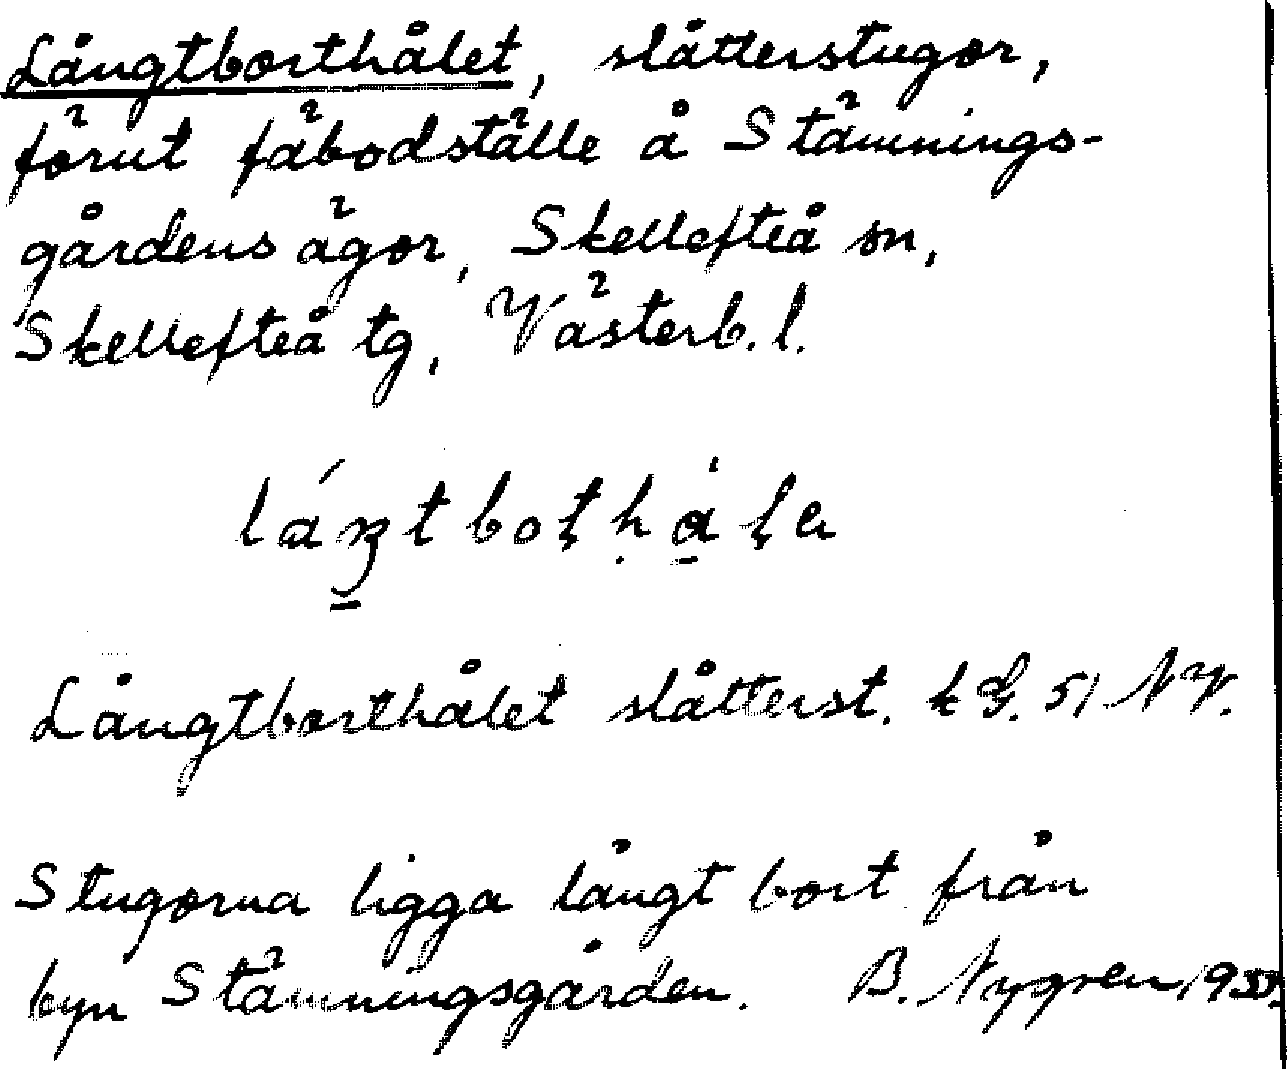 Långtborthålet, slåtterstugor,
förut fäbodställe å Stämnings-
gårdens ägor, Skellefteå sn,
Skellefteå tg, Västerb. l.
Långtborthålet slåtterst. k G. 51 NV.
Stugorna ligga långt bort från
byn Stämningsgården. B. Nygren